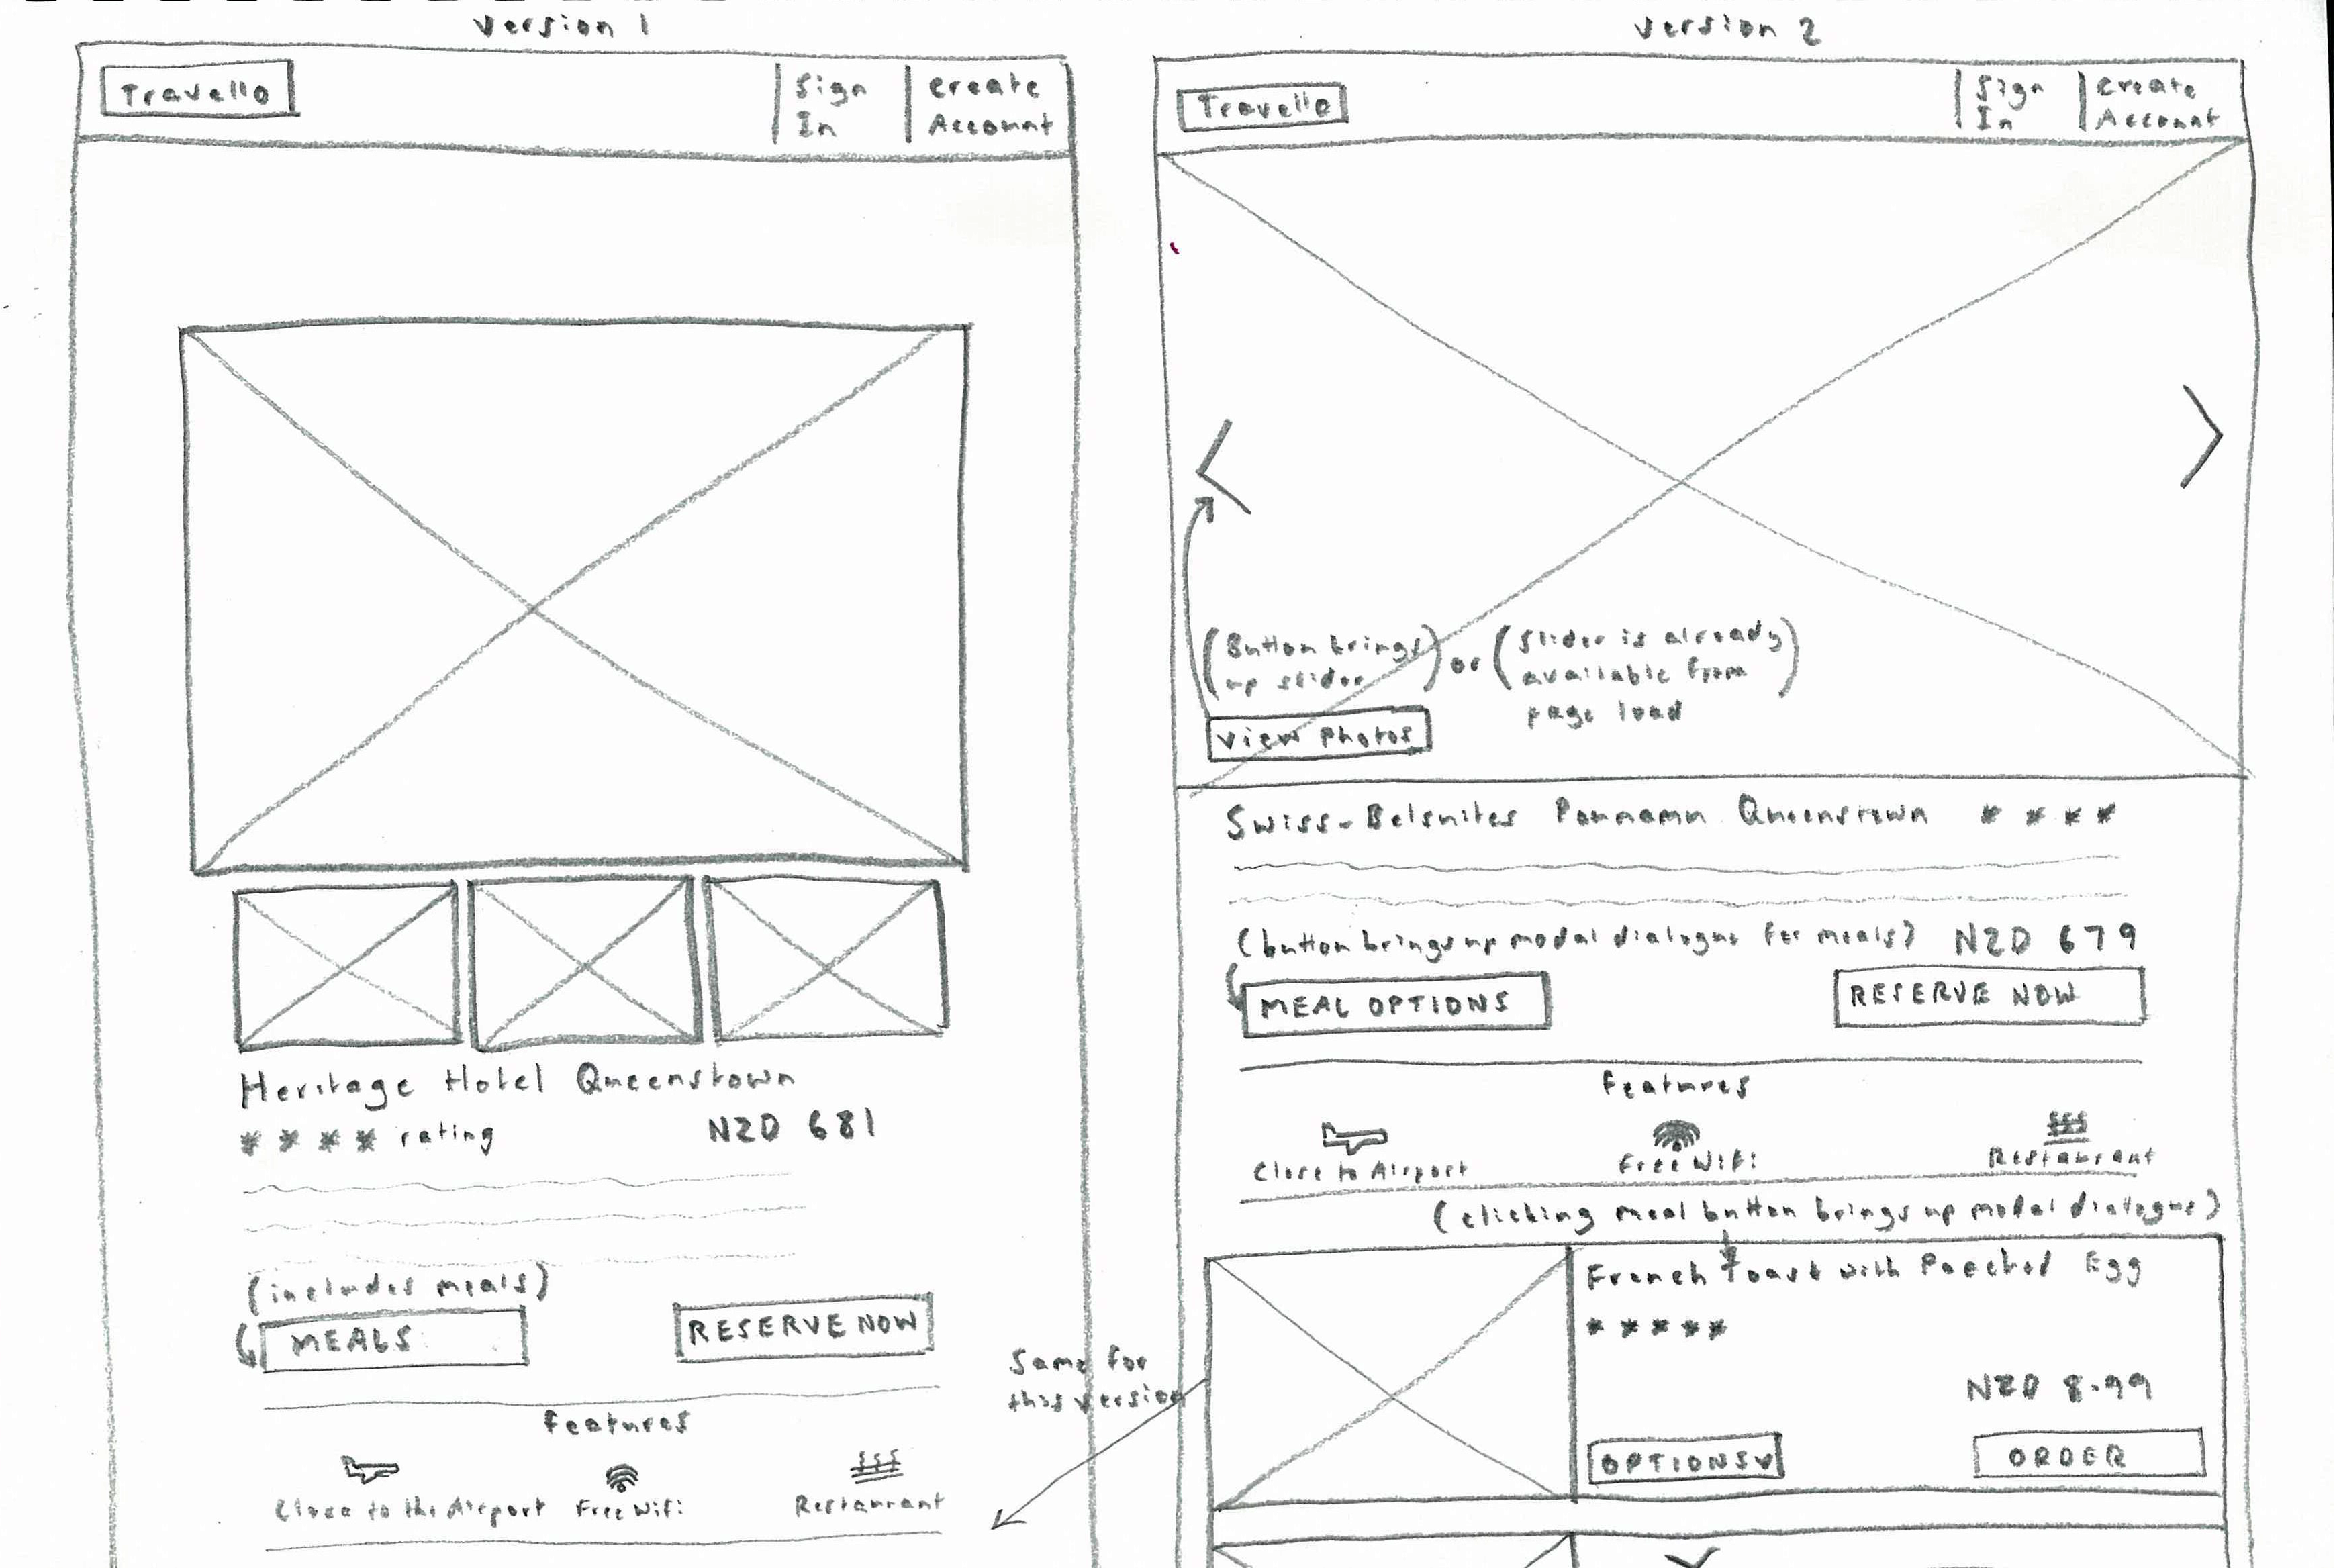 Version 1
Travello
Sign
In
Create
Account
Heritage Hotel Queenstown
* * * * rating
NZD 681
(includes meals)
MEALS
RESERVE NOW
Features
Close to the Airport
Free Wifi
Restaurant
Same for
this version
Version 2
Travello
Sign
In
Create
Account
(Button brings
up slider)
or
(Slider is already
available from
page load)
View Photos
Swiss-Belsuites Pounamu Queenstown * * * *
(button brings up modal dialogue for meals)
NZD 679
MEAL OPTIONS
RESERVE NOW
Features
Close to Airport
Free Wifi
Restaurant
(clicking meal button brings up modal dialogue)
French Toast with Poached Egg
* * * * *
NZD 8.99
OPTIONS
ORDER